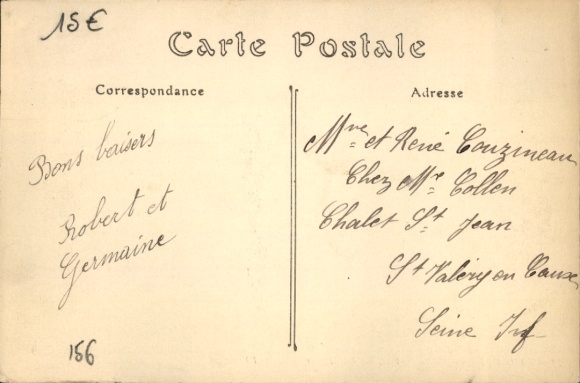 15€
Carte Postale
Correspondance
Adresse
Bons baisers
Robert et
Germaine
156
Mme et René Couzineau
Chez Mr Collen
Chalet St Jean
St Valéry en Caux
Seine Inf